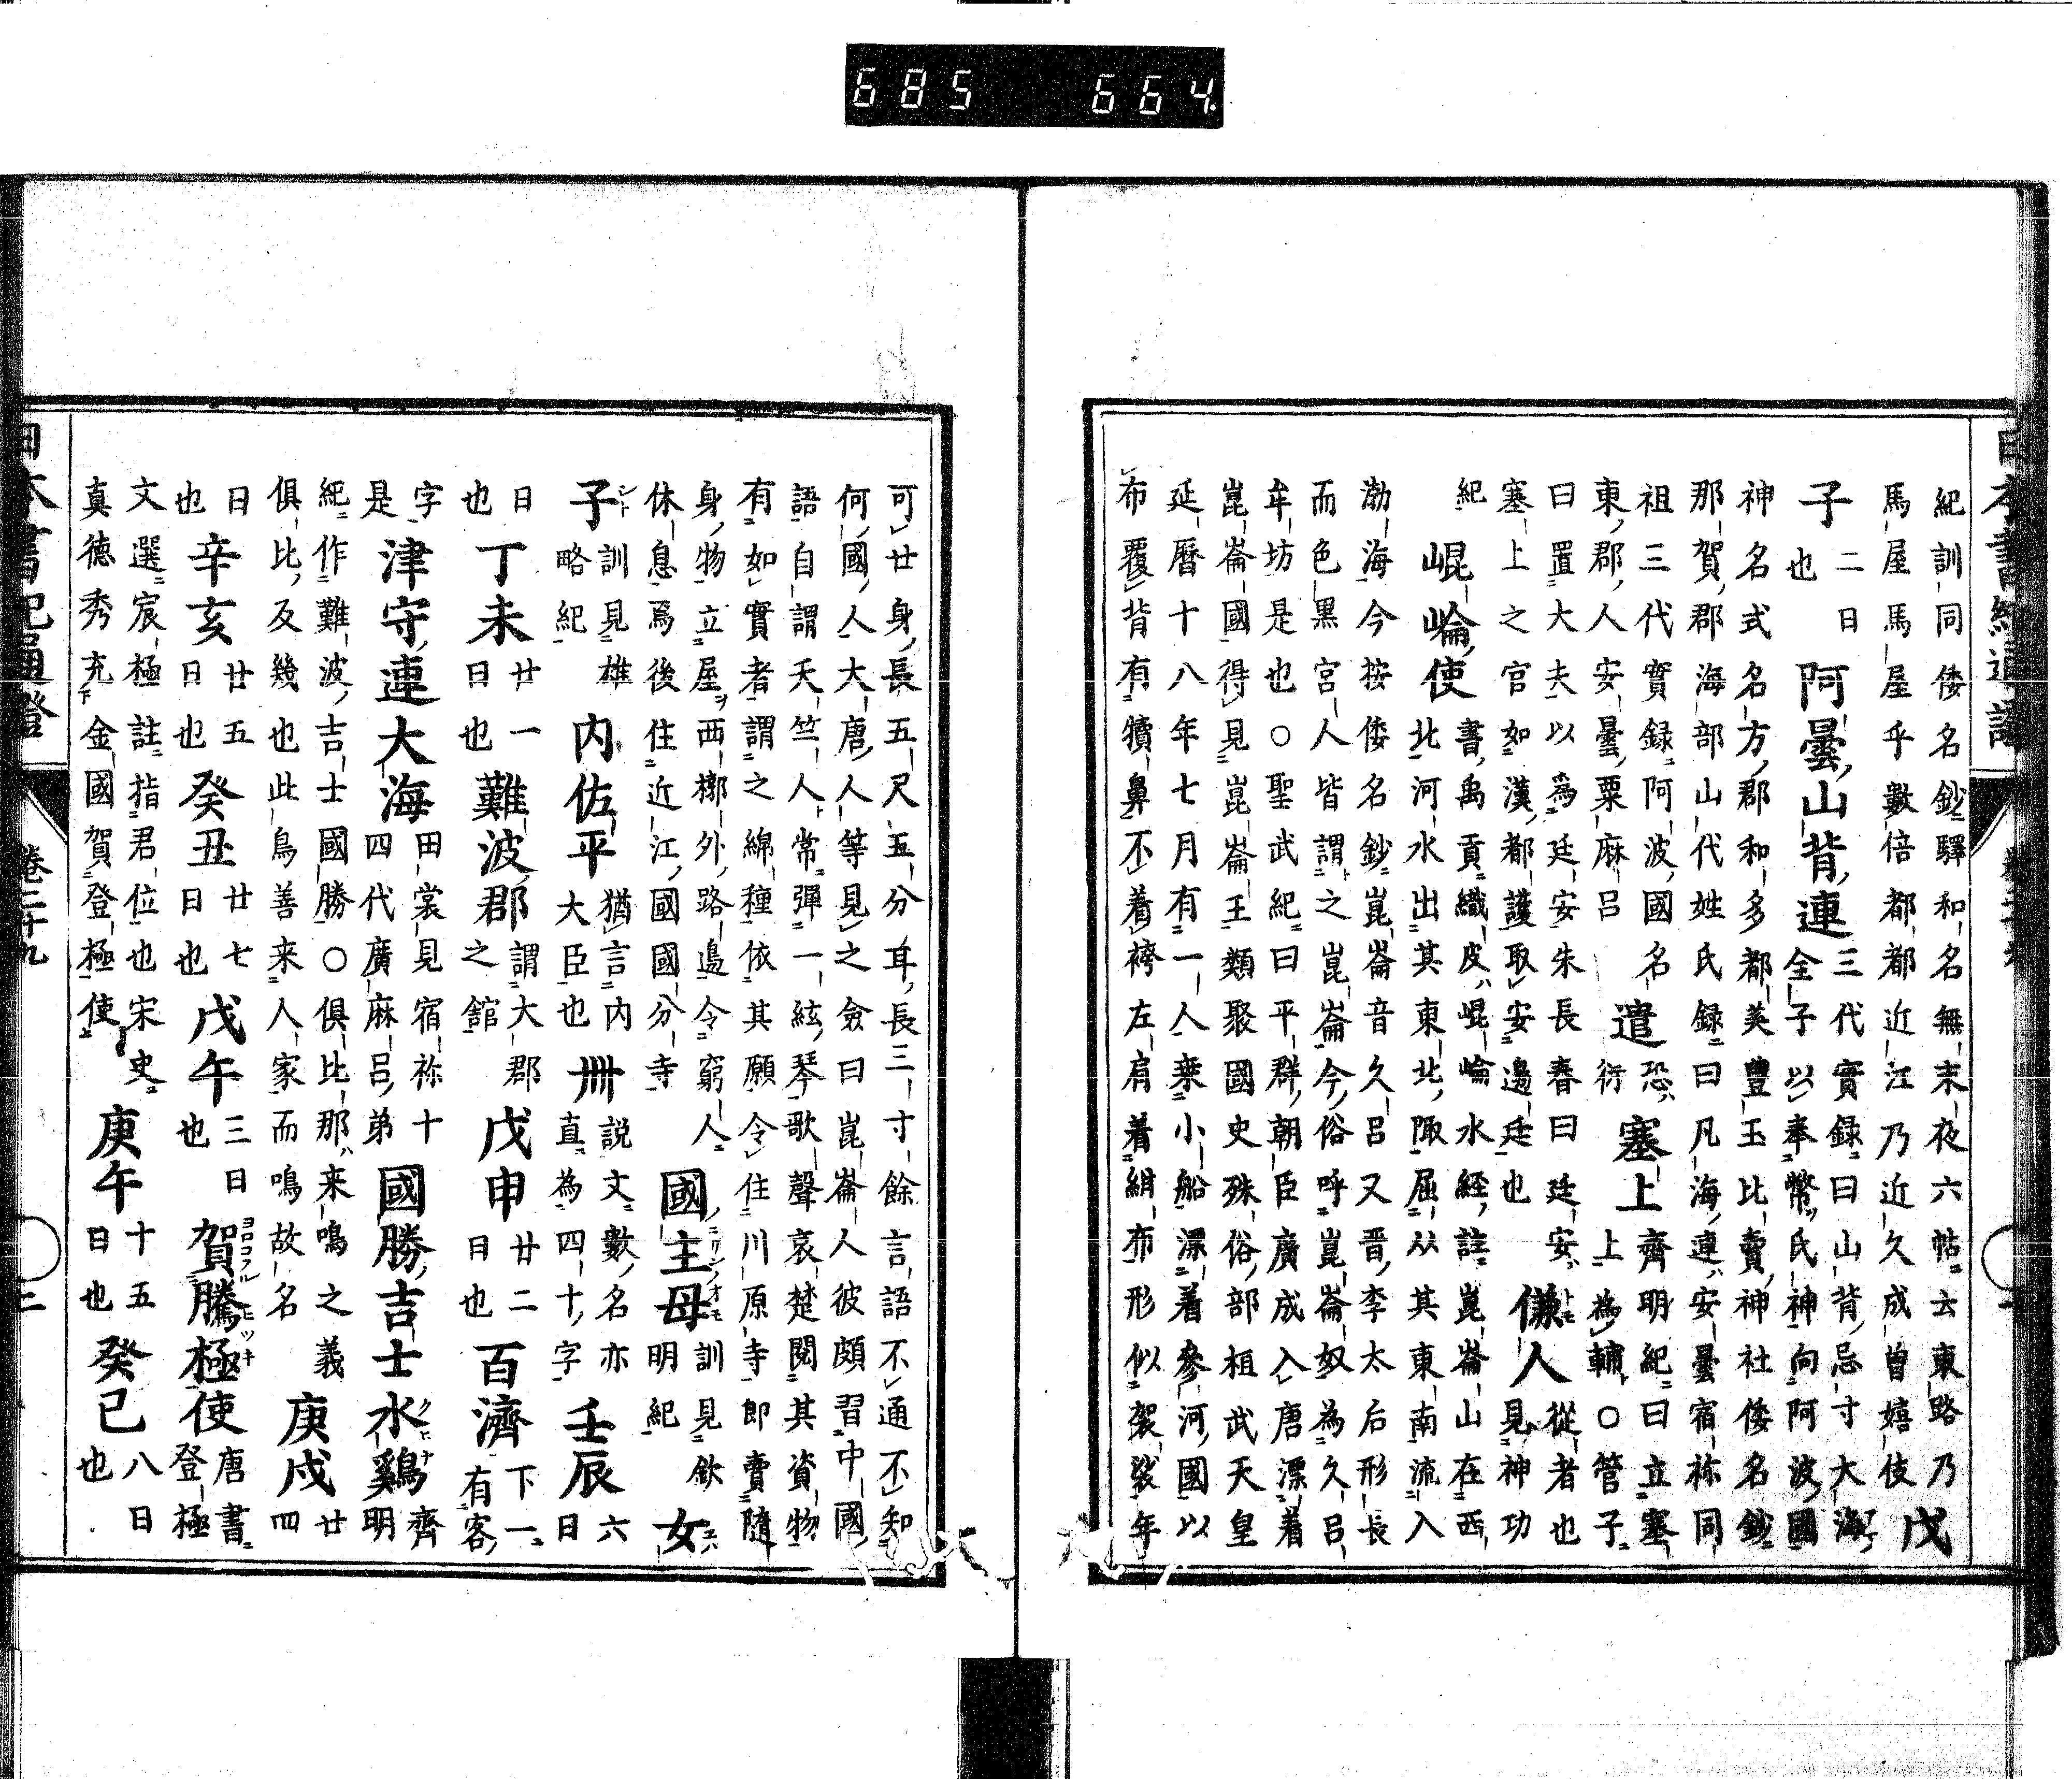 685 664
紀訓同倭名鈔驛和名無末夜六帖云東路乃
馬屋馬屋乎數倍都都近江乃近久成曽嬉伎 戊
子 二日也 阿曇山背連 三代實録曰山背忌寸大海全子以奉幣氏神向阿波國
神名式名方郡和多都美豐玉比賣神社倭名鈔
那賀郡海部山代姓氏録曰凡海連安曇宿祢同
祖三代實録阿波國名 遣 恐衍 塞上 齊明紀曰立塞
東郡人安曇粟麻呂 上為輔○管子
曰置大夫以爲廷安安朱長春曰廷安 傔人 從者也
塞上之官如漢都護取安邊廷也 見神功
紀 崐崘使 書禹貢織皮崐崘水經註崑崙山在西北河水出其東北陬屈从其東南流入
渤海今按倭名鈔崑崙音久呂又晋李太后形長
而色黒宮人皆謂之崑崙今俗呼崑崙奴為久呂
牟坊是也○聖武紀曰平群朝臣廣成入唐漂着
崑崙國得見崑崙王類聚國史殊俗部桓武天皇
延暦十八年七月有一人乗小船漂着參河國以
布覆背有犢鼻不着袴左肩着紺布形似袈裟年
可廿身長五尺五分耳長三寸餘言語不通不知
何國人大唐人等見之僉曰崑崙人彼頗習中國
語自謂天竺人常彈一絃琴歌聲哀楚閲其資物
有如實者謂之綿種依其願令住川原寺即賣隨
身物立屋西槨外路邉令窮人 國主母 訓見欽 女
休息焉後住近江國國分寺 明紀
子 訓見雄略紀 内佐平 猶言内大臣也 卌 説文數名亦直為四十字 壬辰 六日
日也 丁未 廿一日也 難波郡 謂大郡之館 戊申 廿二日也 百濟 下一有客
字是 津守連大海 田裳見宿祢十四代廣麻呂弟 國勝吉士水鷄 齊明
紀作難波吉士國勝○俱比那来鳴之義
俱比反幾也此鳥善来人家而鳴故名 庚戌 廿四
日也 辛亥 廿五日也 癸丑 廿七日也 戊午 三日也 賀騰極使 唐書登極
文選宸極註指君位也宋史
真德秀充金國賀登極使 庚午 十五日也 癸巳 八日也
日本書紀通證
卷二十九
二